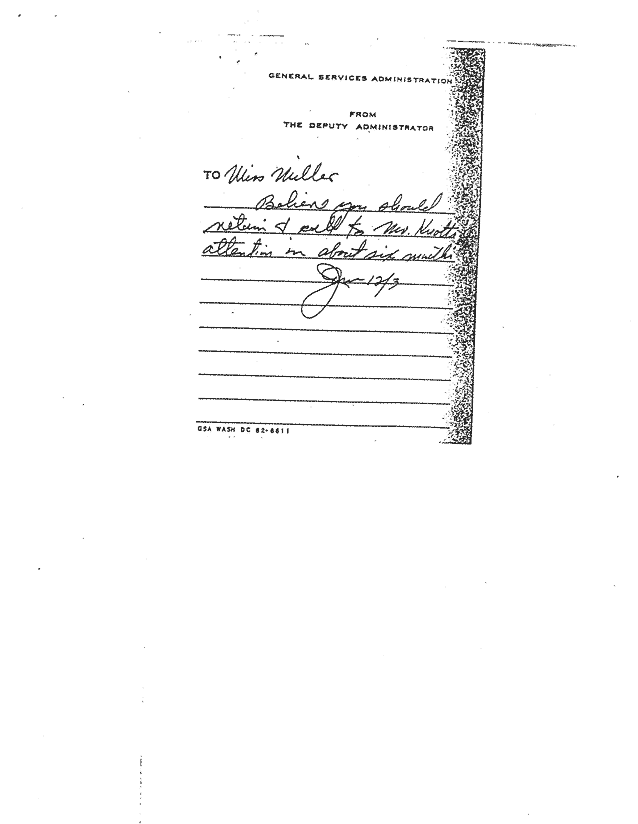 GENERAL SERVICES ADMINISTRATION
FROM
THE DEPUTY ADMINISTRATOR
TO Miss Miller
Believe you should
retain & call to Mr. Knott's
attention in about six months
12/3
GSA WASH DC 62-6611